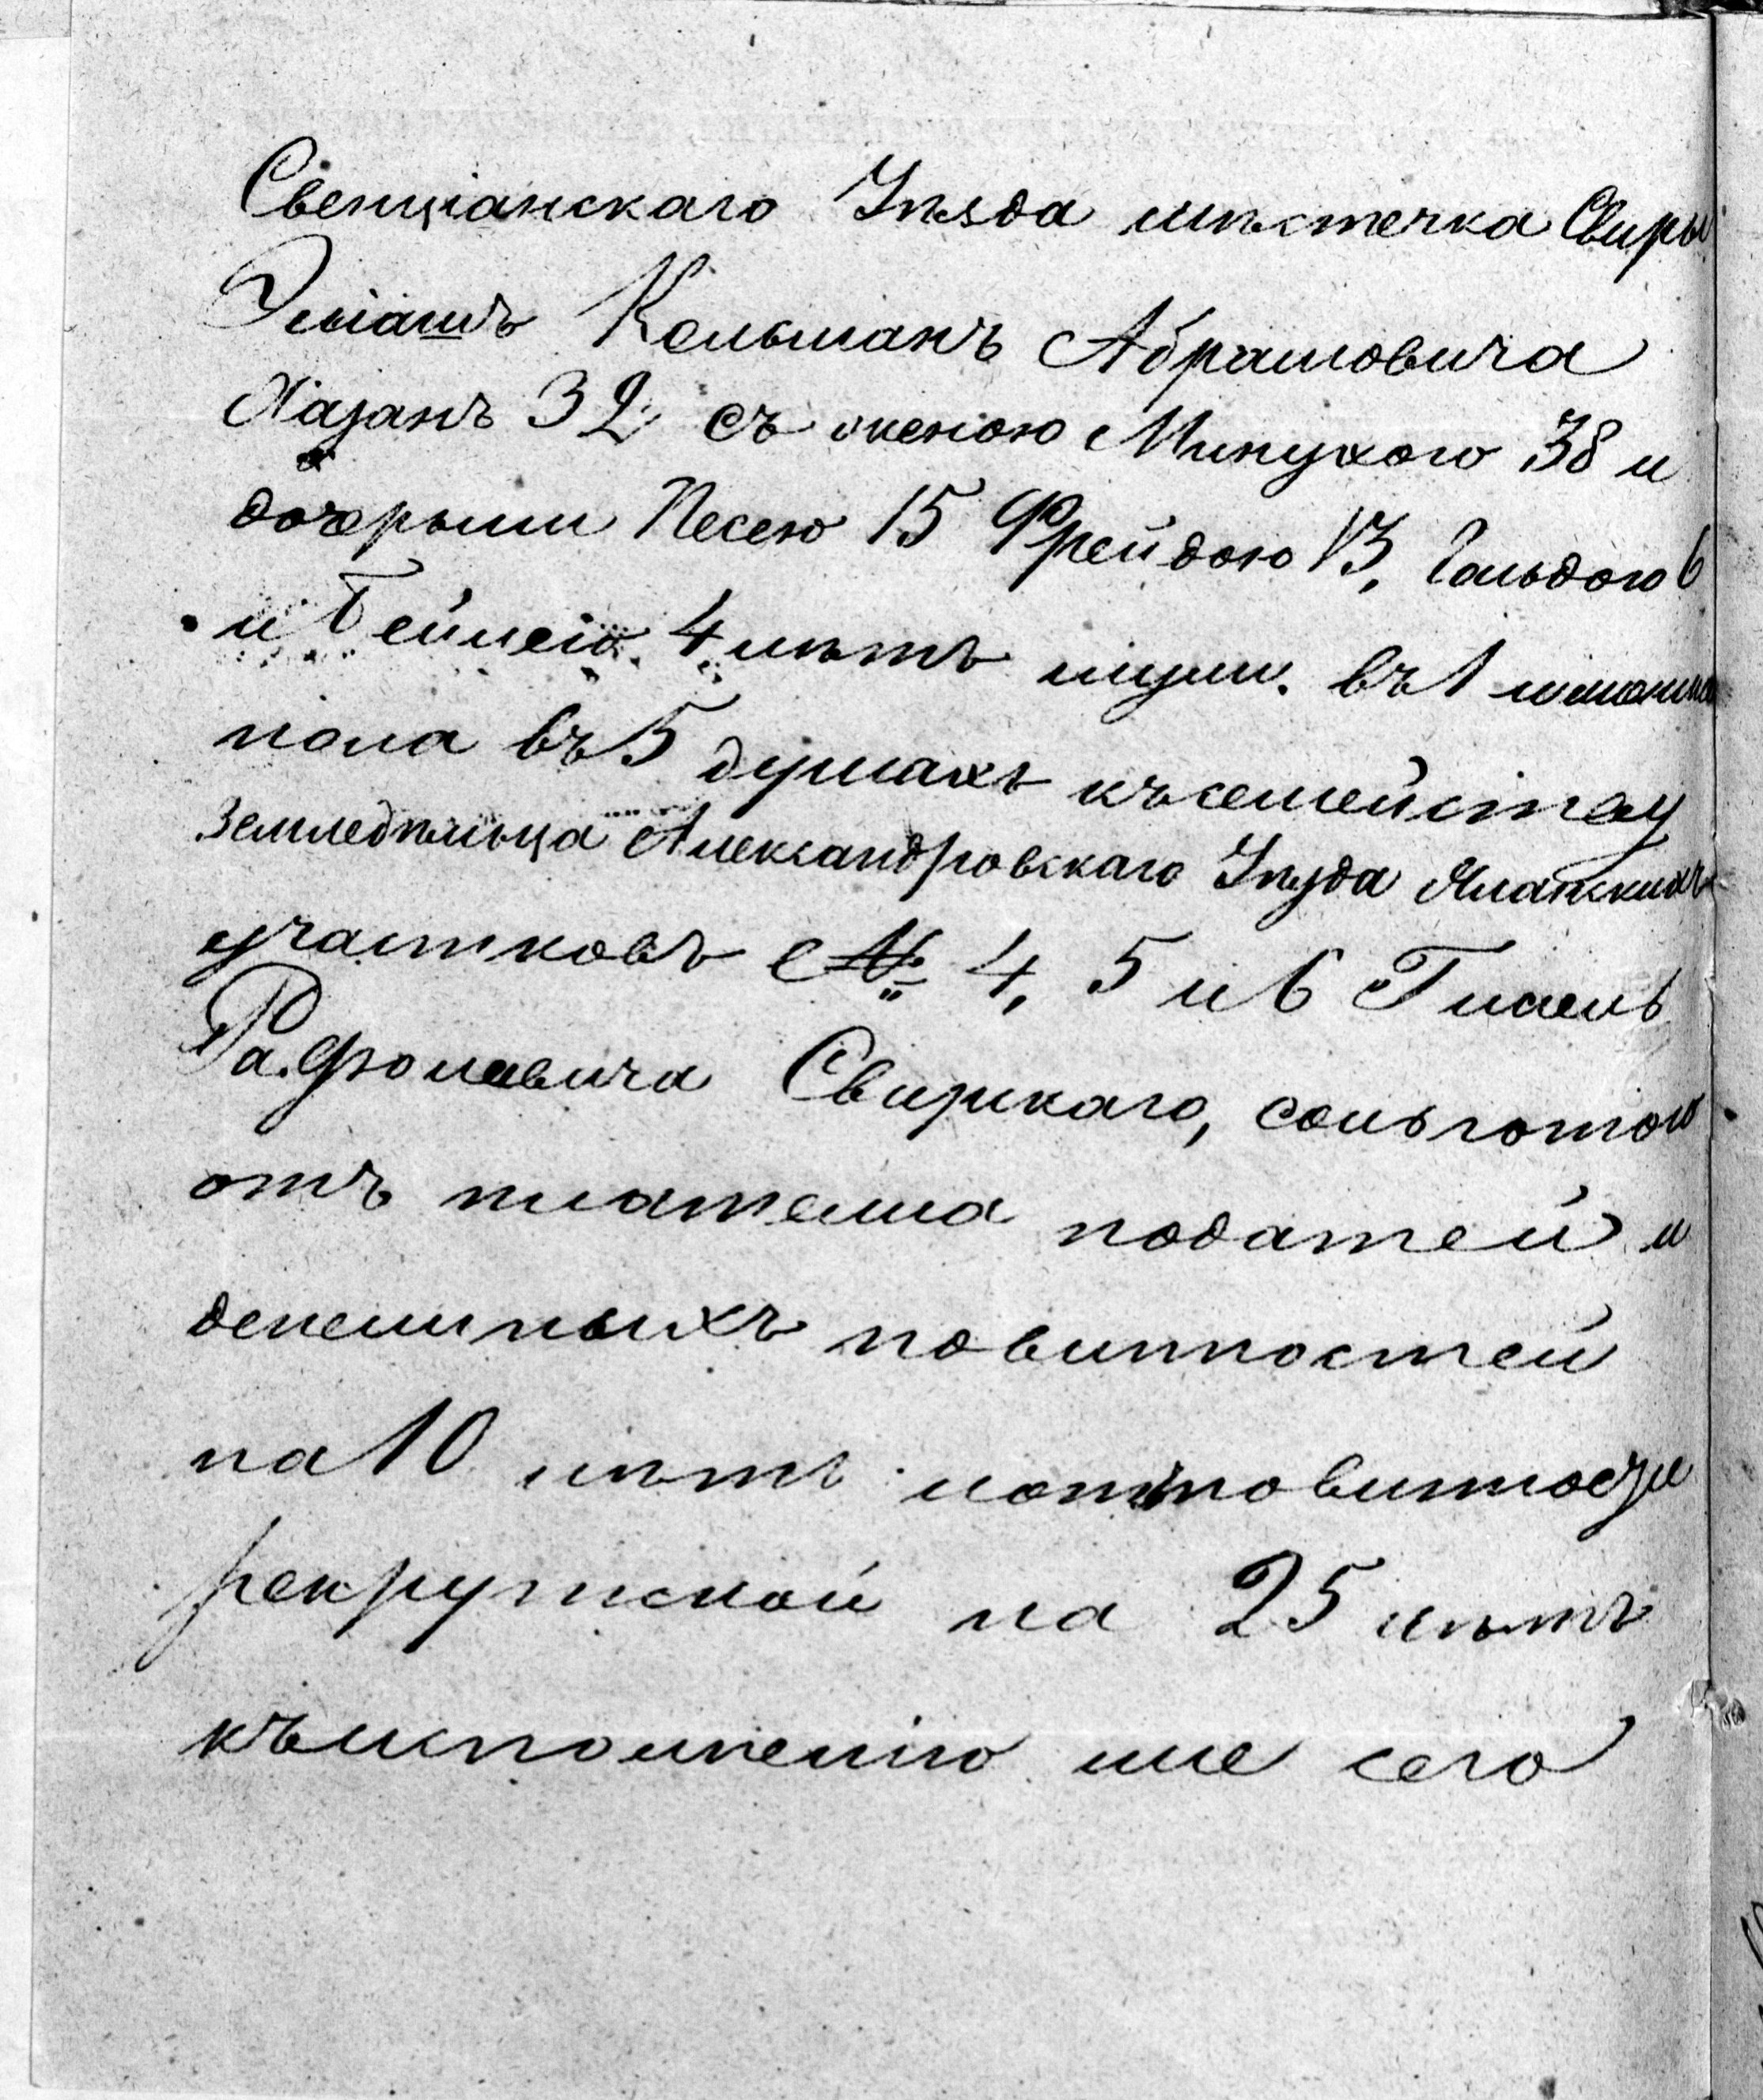 Свенціанскаго Уѣзда мѣстечка Свиры
Кельманъ Абрамовича
Хазанъ 32, съ женою Минухою 38 и
дочерьми Песею 15 Фрейдою 13, Гольдою 6
и Бейлею 4 лѣтъ муж. въ 1 и женска
пола въ 5 душахъ къ семейству
Земледѣльца Александровскаго Уѣзда
участковъ № 4, 5 и 6
Рафоловича Свирскаго, сольготою
отъ платежа податей и
денежныхъ повинностей
на 10 лѣтъ и отъ повинности
рекрутской на 25 лѣтъ
къ исполненію же сего